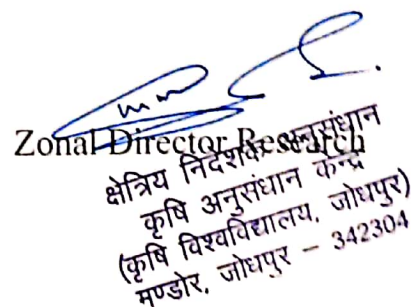 Zonal Director Research
क्षेत्रिय निदेशक अनुसंधान
कृषि अनुसंधान केन्द्र
(कृषि विश्वविद्यालय, जोधपुर)
मण्डोर, जोधपुर – 342304